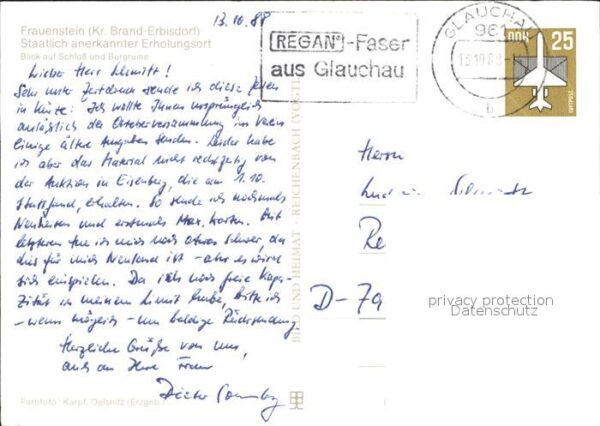 13.10.88
Frauenstein (Kr. Brand-Erbisdorf)
Staatlich anerkannter Erholungsort
Blick auf Schloß und Burgruine
Lieber Herr
Sehr unter Zeitdruck sende ich diese Zeilen
in Kürze: Ich wollte Ihnen ursprünglich
anläßlich der Oktoberversammlung im Verein
einige ältere Ausgaben senden. Leider habe
ich aber das Material nicht rechtzeitig von
der Auktion in Eisenberg, die am 1.10.
stattfand, erhalten. So sende ich nochmals
Neuheiten und erstmals Max. Karten. Mit
letzteren tue ich mich noch etwas schwer, da
dies für mich Neuland ist - aber es wird
sich einspielen. Da ich noch freie Kapa-
zität in meinem Limit habe, bitte ich
- wenn möglich - um baldige Rücksendung.
Herzliche Grüße von uns,
auch an Ihre Frau
Dieter
REGAN®-Faser
aus Glauchau
GLAUCHAU
961
13.10.88
b
DDR
25
LUFTPOST
Herrn
Re
D-79
BILD UND HEIMAT REICHENBACH (VOGTL)
privacy protection
Datenschutz
Farbfoto: Karpf, Oelsnitz (Erzgeb.)